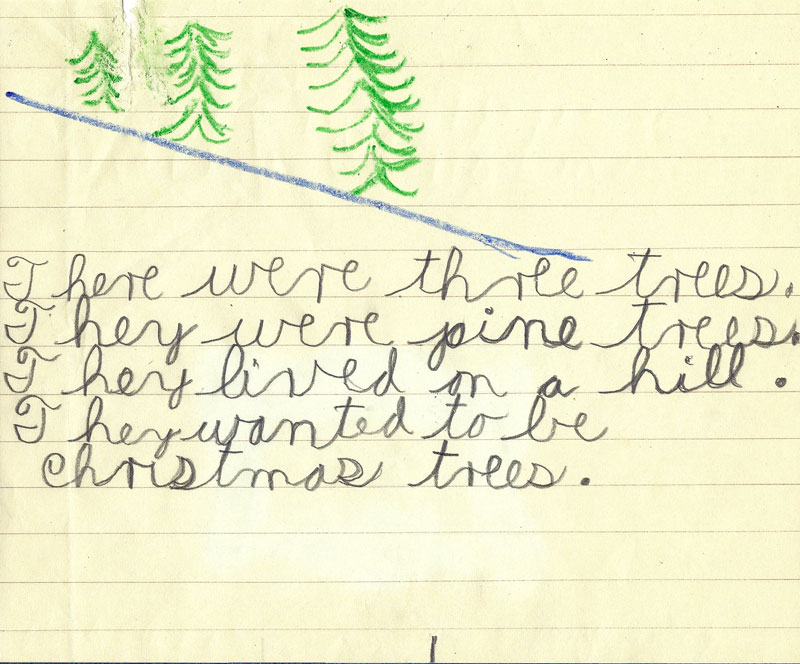 There were three trees.
They were pine trees.
They lived on a hill.
They wanted to be
christmas trees.
1